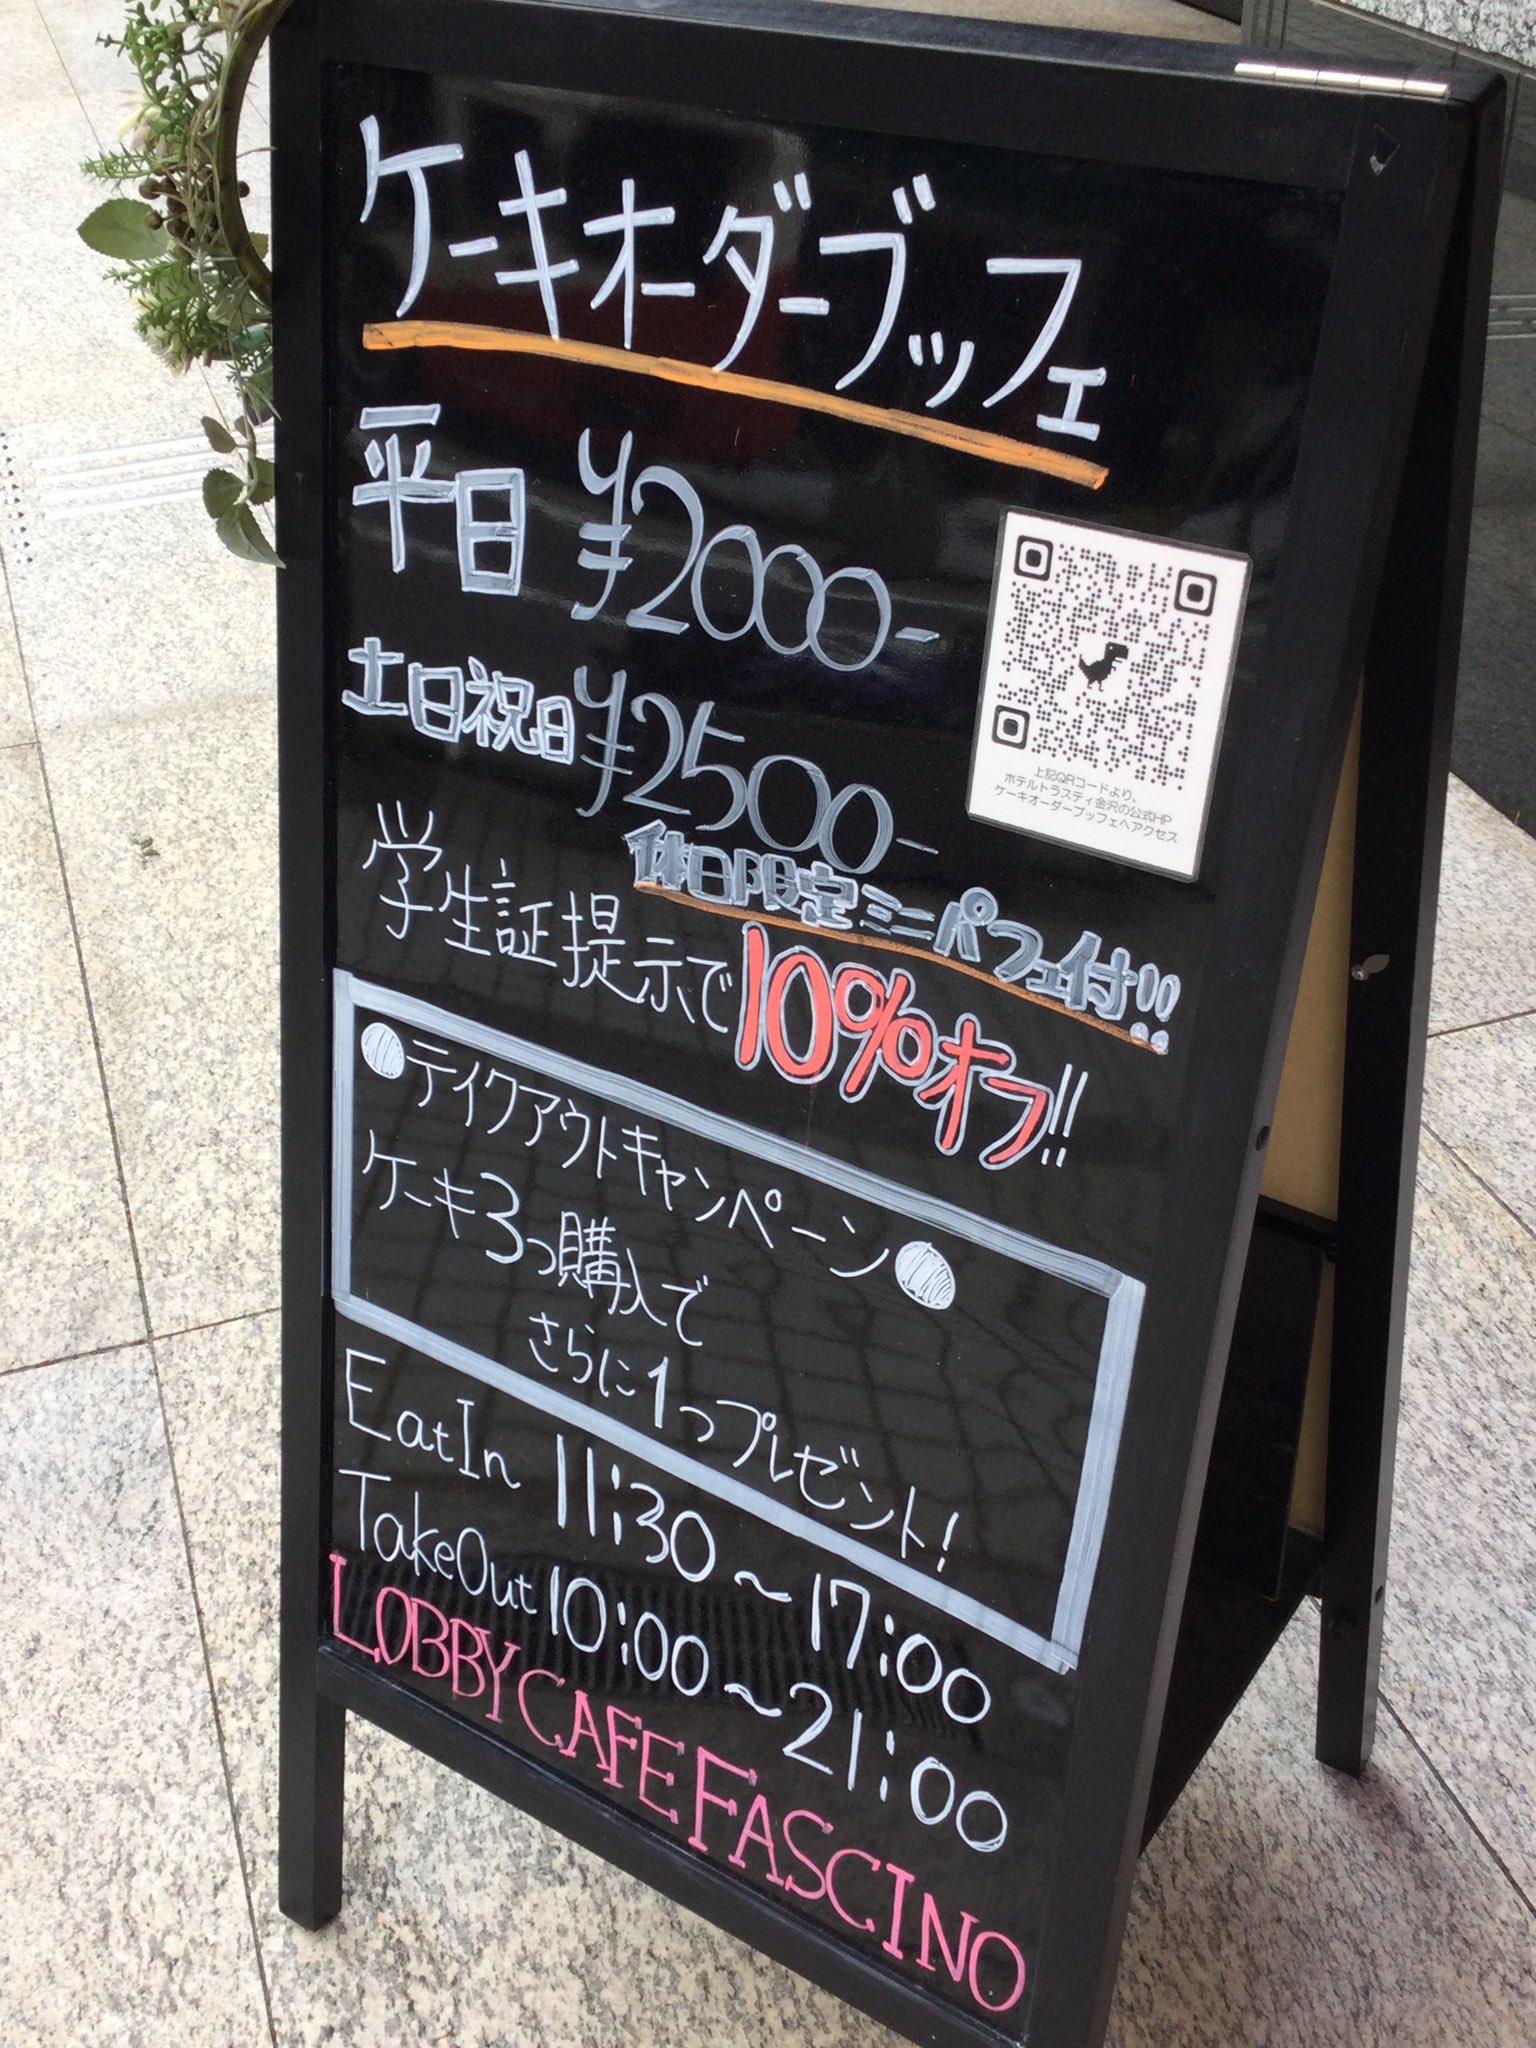 ケーキオーダーブッフェ
平日 ¥2000-
土日祝日 ¥2500-
休日限定ミニパフェ付!!
上記QRコードより、
ホテルトラスティ金沢の公式HP
ケーキオーダーブッフェへアクセス
学生証提示で10%オフ!!
●テイクアウトキャンペーン●
ケーキ3つ購入で
さらに1つプレゼント!
EatIn 11:30~17:00
TakeOut 10:00~21:00
LOBBY CAFE FASCINO